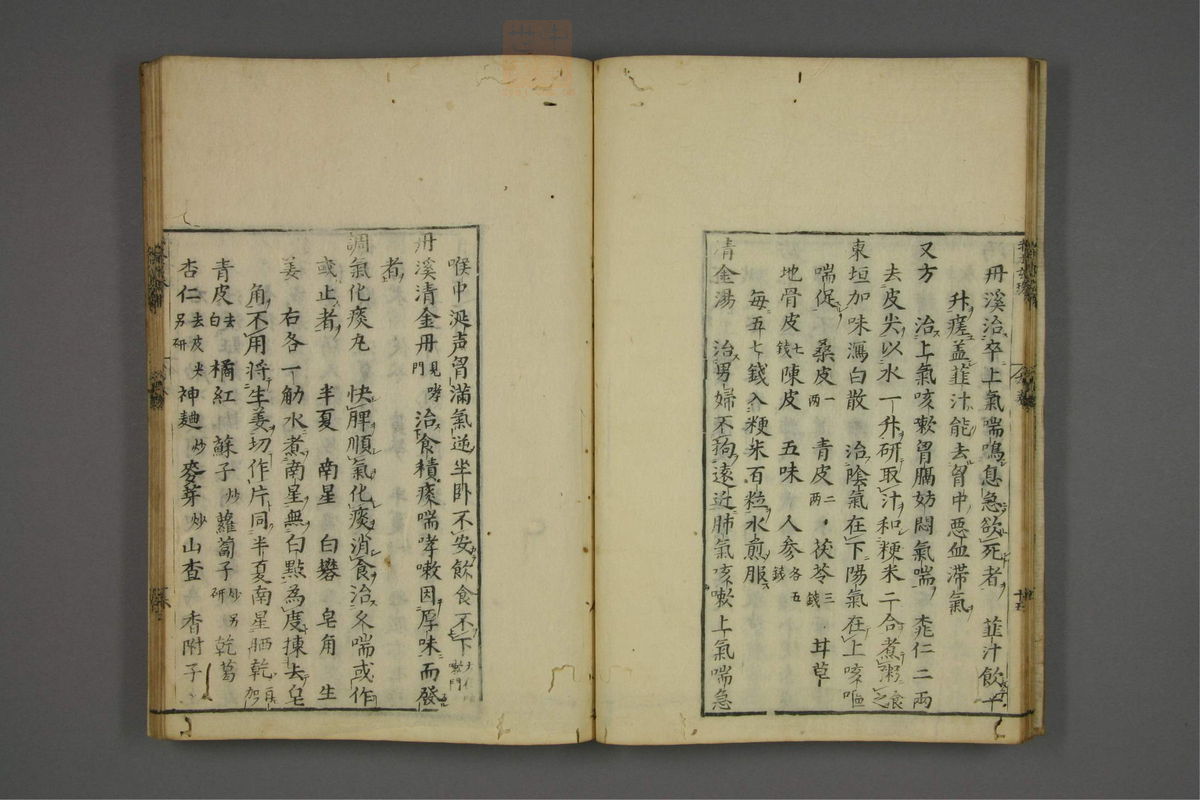 丹溪治卒上氣喘鳴息急欲死者 韮汁飲一
升瘥盖韮汁能去胷中惡血滯氣
又方 治上氣咳嗽胷膈妨悶氣喘 桃仁二兩
去皮尖以水一升研取汁和粳米二合煮粥食之
東垣加味瀉白散 治陰氣在下陽氣在上咳嘔
喘促 桑皮一兩 青皮二兩 茯苓三錢 甘草
地骨皮七錢 陳皮 五味 人参各五錢
每五七錢入粳米百粒水煎服
清金湯 治男婦不拘遠近肺氣咳嗽上氣喘急
喉中涎声胷滿氣逆坐卧不安飲食不下
丹溪清金丹見哮門 治食積痰喘哮嗽因厚味而發
者
調氣化痰丸 快脾順氣化痰消食治久喘或作
或止者 半夏 南星 白礬 皂角 生
姜 右各一觔水煮南星無白點為度揀去皂
角不用将生姜切作片同半夏南星晒乾
青皮去白 橘紅 蘇子炒 蘿蔔子炒另研 乾葛
杏仁去皮尖另研 神麯炒 麥芽炒 山查 香附子